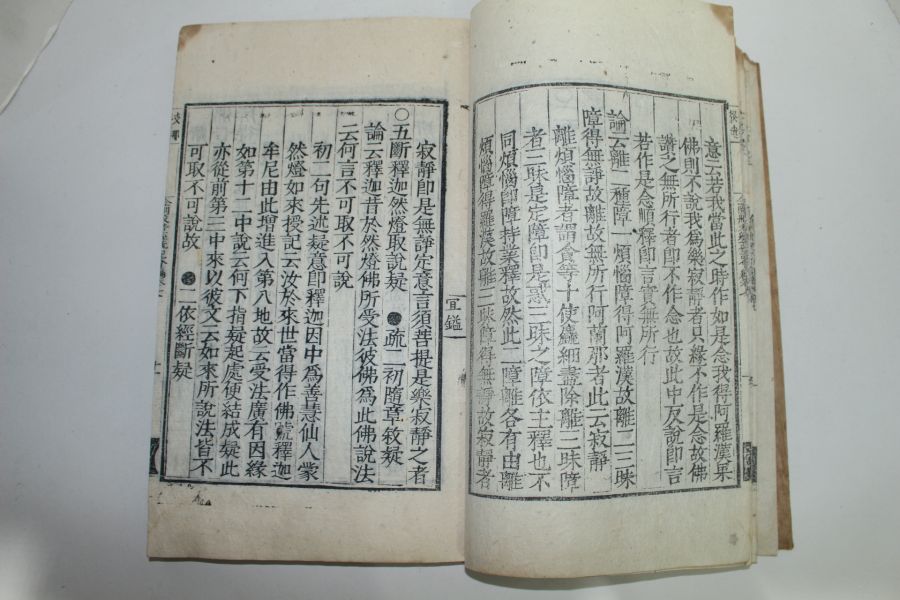 意云若我當此之時作如是念我得阿羅漢果
佛則不說我為樂寂靜者只緣不作是念故佛
讚之無所行者即不作念也故此中反說即言
若作是念順釋即言實無所行
論云離二種障一煩惱障得阿羅漢故離二三昧
障得無諍故離故無所行阿蘭那者此云寂靜
離煩惱障者謂貪等十使麤細盡除離三昧障
者三昧是定障即是惑三昧之障依主釋也不
同煩惱即障持業釋故然此二障離各有由離
煩惱障得羅漢故離三昧障得無諍故寂靜者
宜鎰
寂靜即是無諍定意言須菩提是樂寂靜之者
○五斷釋迦然燈取說疑 疏二初隨章敘疑
論云釋迦昔於然燈佛所受法彼佛為此佛說法
云何言不可取不可說
初二句先述疑意即釋迦因中為善慧仙人蒙
然燈如來授記云汝於來世當得作佛號釋迦
牟尼由此增進入第八地故云受法廣有因緣
如第十二中說云何下指疑起處便結成疑此
亦從前第三中來以彼文云如來所說法皆不
可取不可說故 二依經斷疑